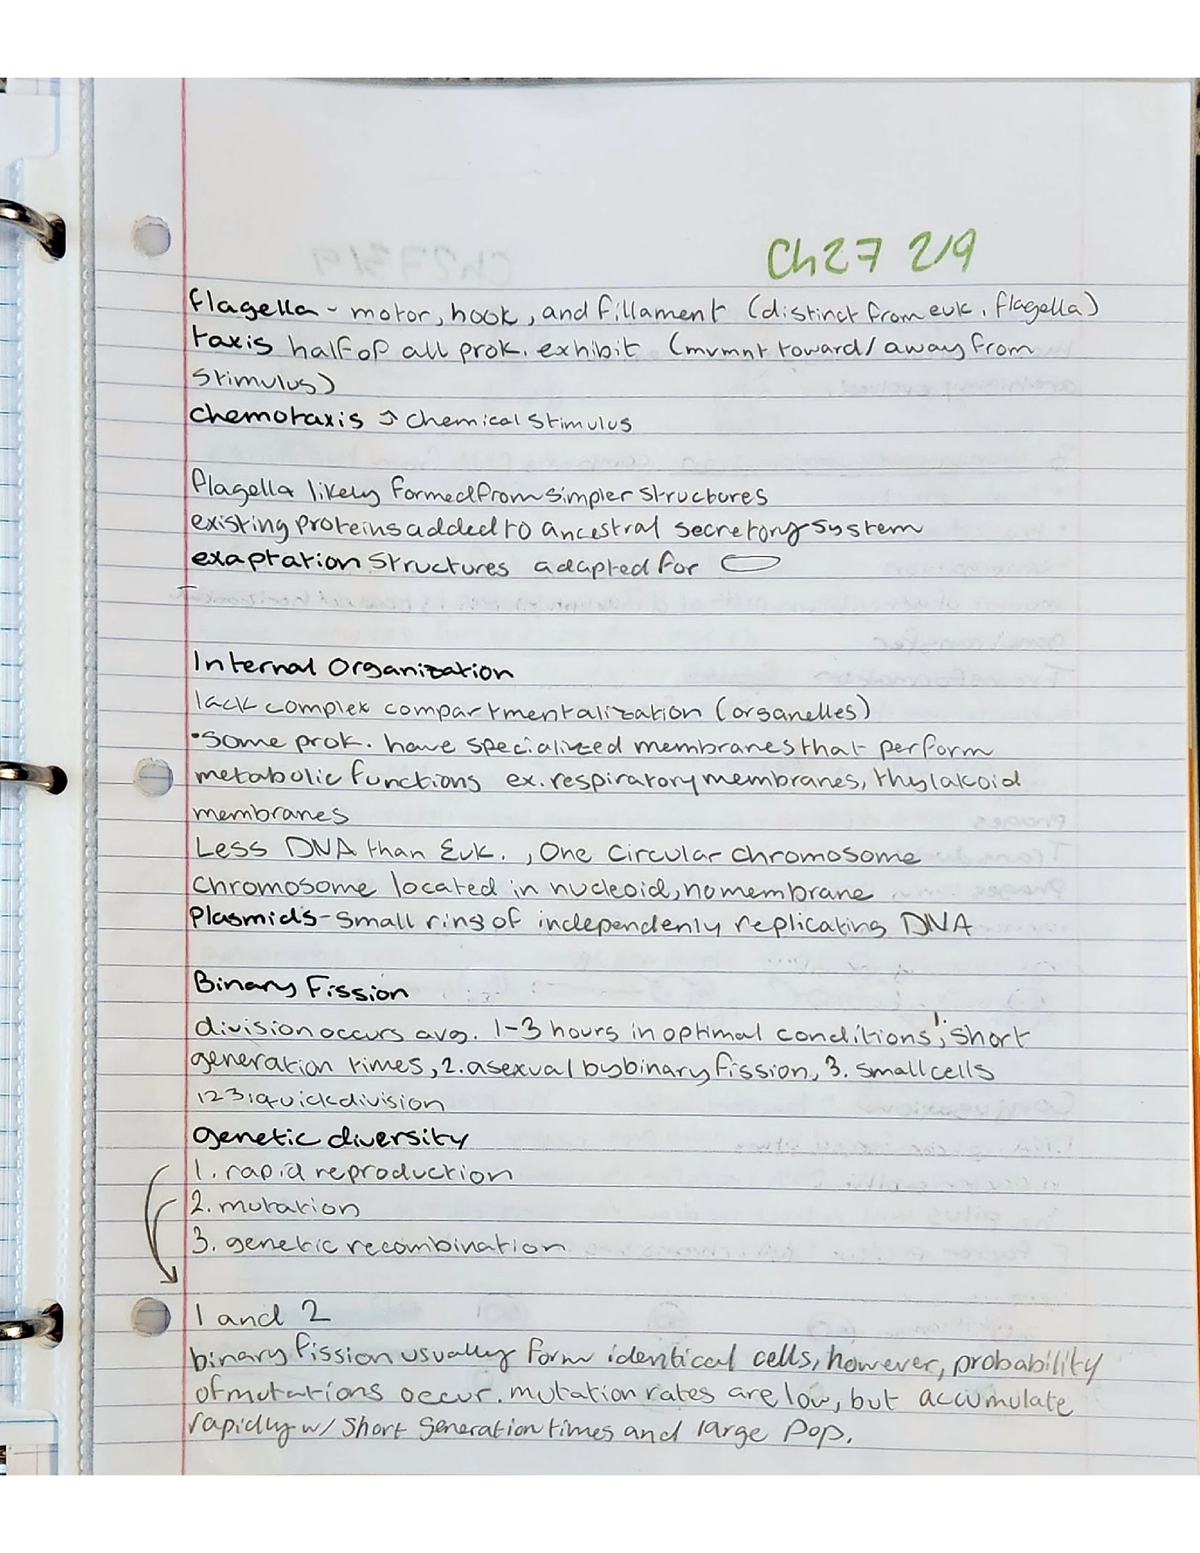 Ch 27 2/9
flagella - motor, hook, and fillament (distinct from euk. flagella)
taxis half of all prok. exhibit (mvmnt toward/away from
stimulus)
chemotaxis → chemical stimulus
flagella likely formed from simpler structures
existing proteins added to ancestral secretory system
exaptation structures adapted for
Internal Organization
lack complex compartmentalization (organelles)
•some prok. have specialized membranes that perform
metabolic functions ex. respiratory membranes, thylakoid
membranes
Less DNA than Euk., One circular chromosome
chromosome located in nucleoid, no membrane
Plasmids - small rings of independenly replicating DNA
Binary Fission
division occurs avg. 1-3 hours in optimal conditions; 1. short
generation times, 2. asexual by binary fission, 3. small cells
123: quick division
genetic diversity
1. rapid reproduction
2. mutation
3. genetic recombination
1 and 2
binary fission usually form identical cells, however, probability
of mutations occur. mutation rates are low, but accumulate
rapidly w/ short generation times and large pop.